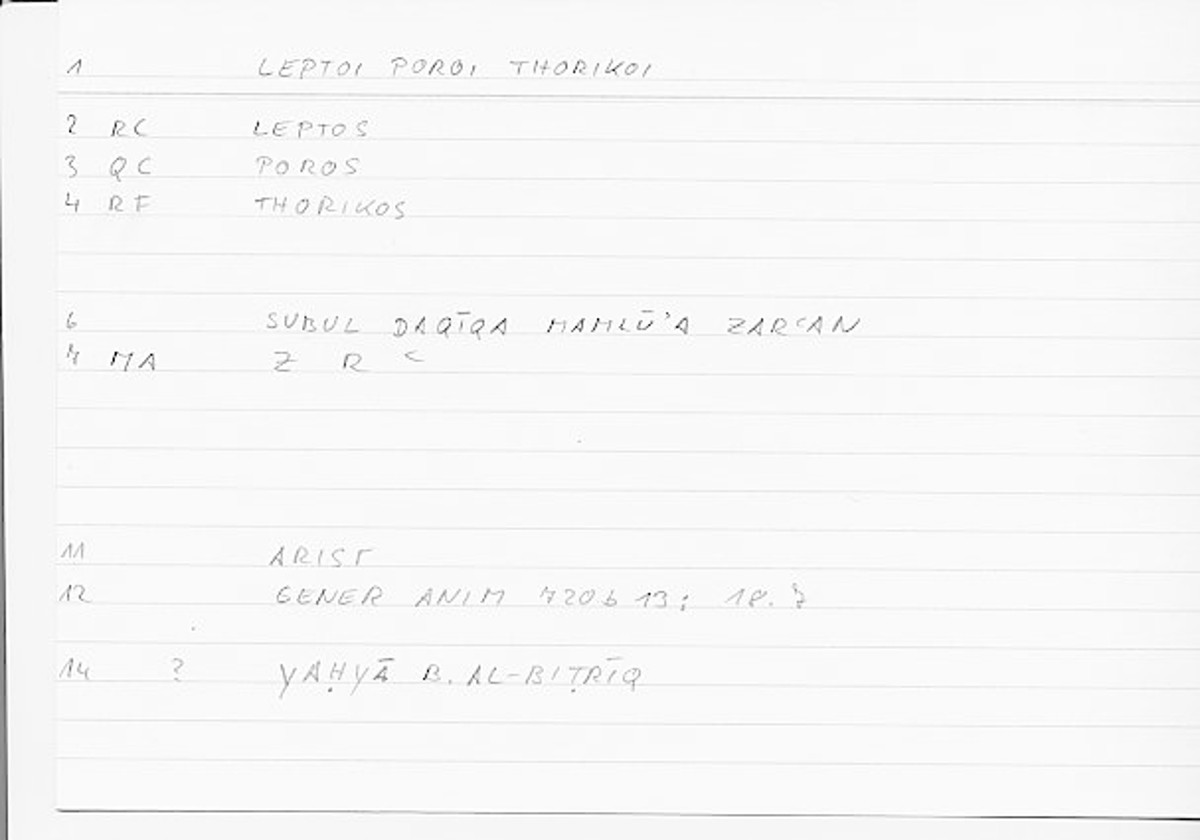 1 LEPTOI POROI THORIKOI
2 RC LEPTOS
3 QC POROS
4 RF THORIKOS
6 SUBUL DAQĪQA MAMLŪ'A ZARʿAN
7 MA Z R ʿ
11 ARIST
12 GENER ANIM 720b 13; 18.7
14 ? YAḤYĀ B. AL-BIṬRĪQ